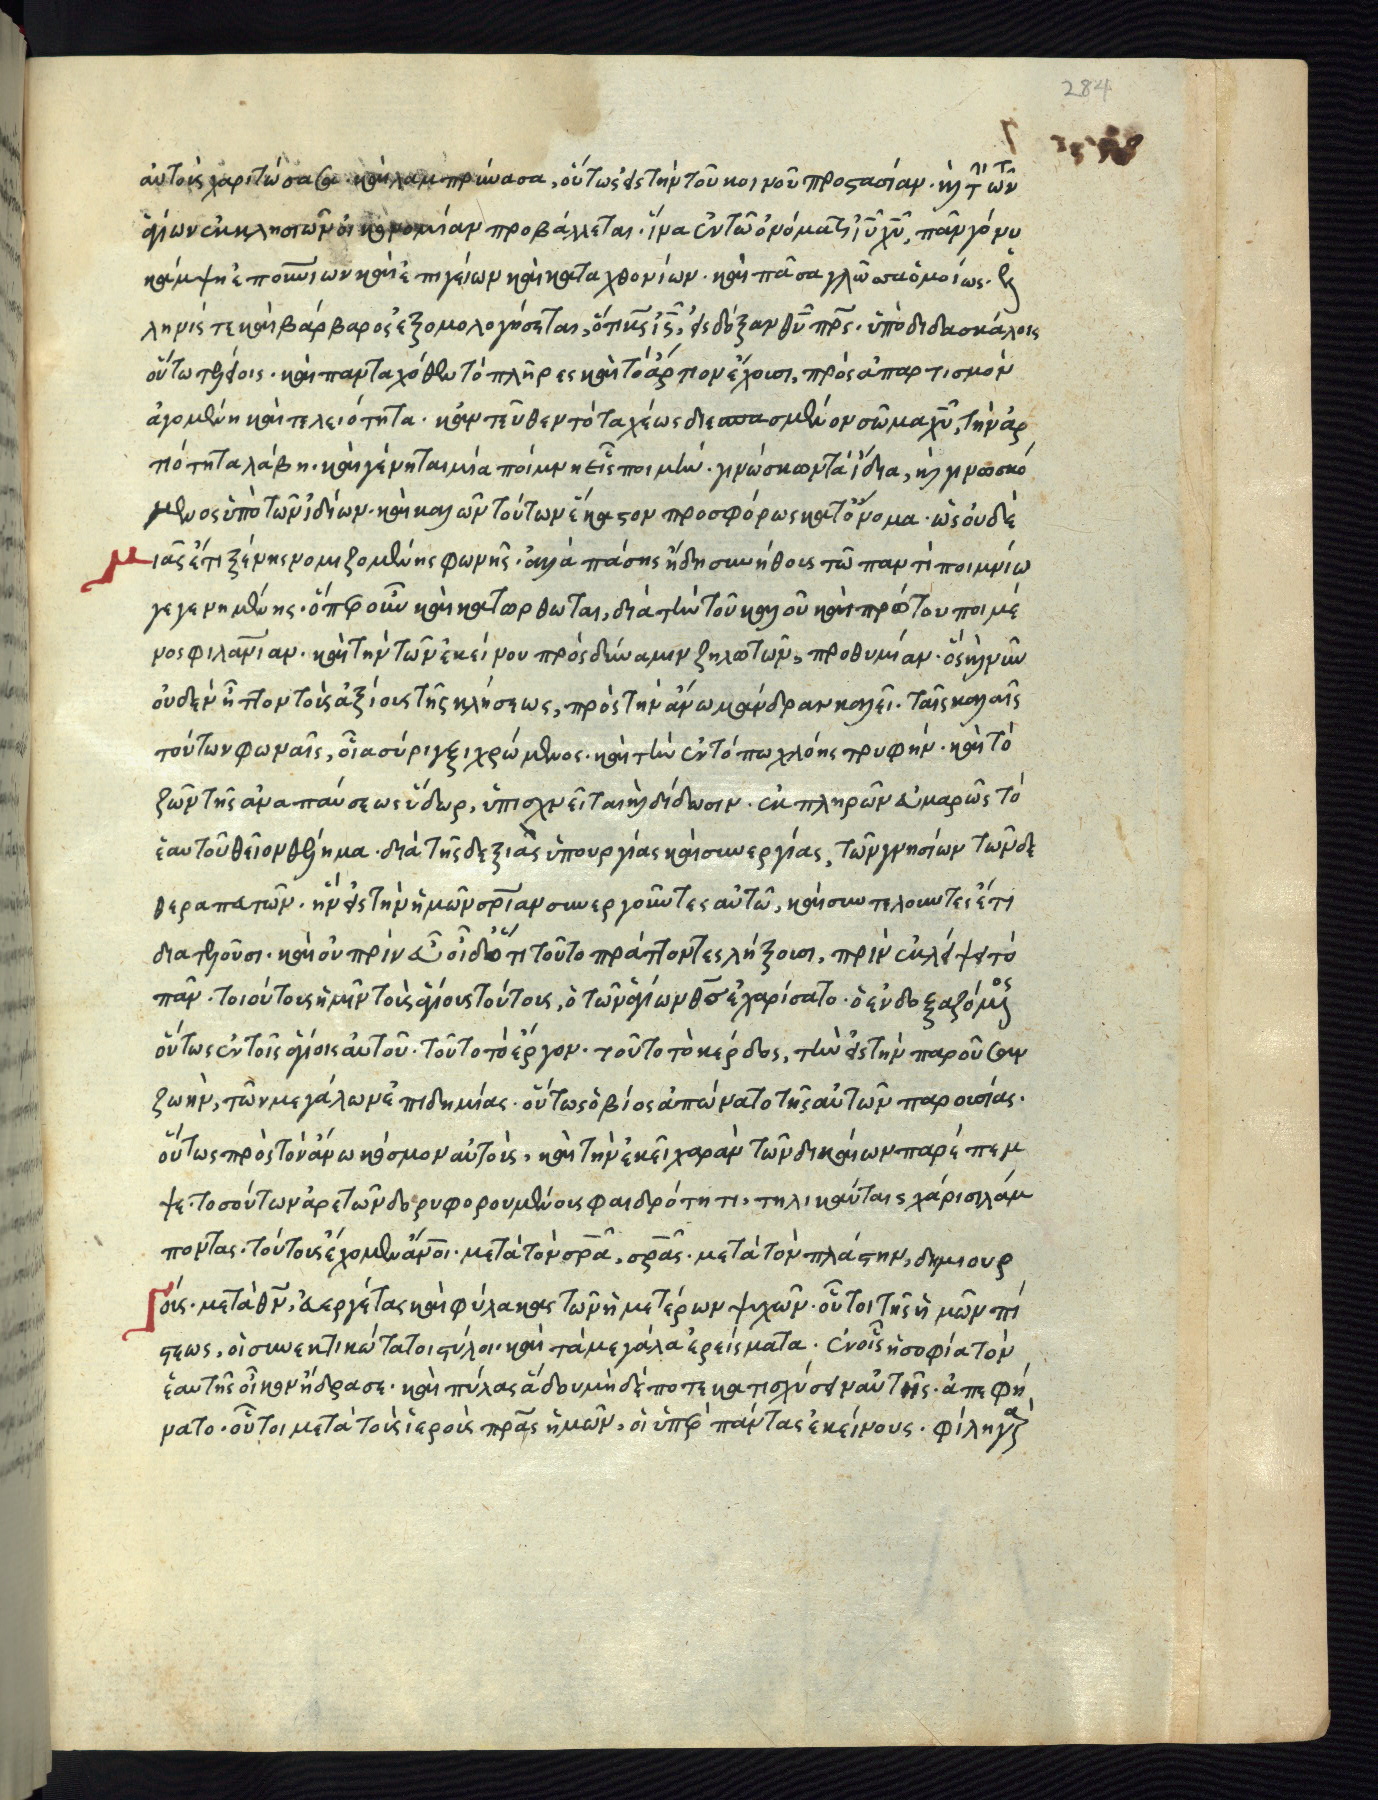 284
αὐτοὺς χαριτώσασα· καὶ λαμπρύνασα, οὕτως εἰς τὴν τοῦ κοινοῦ προστασίαν· καὶ τὴν τῶν
ἁγίων ἐκκλησιῶν οἰκονομίαν προβάλλεται· ἵνα ἐν τῶ ὀνόματι ἰῦ χῦ, πᾶν γόνυ
κάμψη ἐπουρανίων καὶ ἐπιγείων καὶ καταχθονίων· καὶ πᾶσα γλῶσσα ὁμοίως· ἑλ
ληνίς τε καὶ βάρβαρος ἐξομολογήσεται, ὅτι κς ἰς, εἰς δόξαν θῦ πρς· ὑπὸ διδασκάλοις
οὕτω τελείοις· καὶ πανταχόθεν τὸ πλῆρες καὶ τὸ ἄρτιον ἔχουσι, πρὸς ἀπαρτισμὸν
ἀγομένη καὶ τελειότητα· κἀντεῦθεν τὸ ταχέως διεσπασμένον σῶμα χῦ, τὴν ἀρ
τιότητα λάβη· καὶ γένηται μία ποίμνη εἷς ποιμήν· γινώσκων τὰ ἴδια, καὶ γινωσκό
μενος ὑπὸ τῶν ἰδίων· καὶ καλῶν τούτων ἕκαστον προσφόρως κατ' ὄνομα· ὡς οὐδε
μιᾶς ἔτι ξένης νομιζομένης φωνῆς· ἀλλὰ πάσης ἤδη συνήθους τῶ παντὶ ποιμνίω
γεγενημένης· ὅπερ οὖν καὶ κατώρθωται, διὰ τὴν τοῦ καλοῦ καὶ πρώτου ποιμέ
νος φιλανίαν· καὶ τὴν τῶν ἐκείνου πρὸς δύναμιν ζηλωτῶν, προθυμίαν· ὃς καὶ νῦν
οὐδὲν ἧττον τοὺς ἀξίους τῆς κλήσεως, πρὸς τὴν ἄνω μάνδραν καλεῖ· ταῖς καλαῖς
τούτων φωναῖς, οἷα σύριγξι χρώμενος· καὶ τὴν ἐν τόπω χλόης τρυφήν· καὶ τὸ
ζῶν τῆς ἀναπαύσεως ὕδωρ, ὑπισχνεῖται καὶ δίδωσιν· ἐκπληρῶν εὐμαρῶς τὸ
ἑαυτοῦ θεῖον θέλημα· διὰ τῆς δεξιᾶς ὑπουργίας καὶ συνεργίας, τῶν γνησίων τῶνδε
θεραπευτῶν· ἣν εἰς τὴν ἡμῶν σρίαν συνεργοῦντες αὐτῶ, καὶ συντελοῦντες ἔτι
διατελοῦσι· καὶ οὐ πρὶν εὖ οἶδ' ὅτι τοῦτο πράττοντες λήξουσι, πρὶν ἐκλείψει τὸ
πᾶν· τοιούτους ἡμῖν τοὺς ἁγίους τούτους, ὁ τῶν ἁγίων θς ἐχαρίσατο· ὁ ἐνδοξαζόμενος
οὕτως ἐν τοῖς ἁγίοις αὐτοῦ· τοῦτο τὸ ἔργον· τοῦτο τὸ κέρδος, τὴν εἰς τὴν παροῦσαν
ζωὴν, τῶν μεγάλων ἐπιδημίας· οὕτως ὁ βίος ἀπώνατο τῆς αὐτῶν παρουσίας·
οὕτως πρὸς τὸν ἄνω κόσμον αὐτοὺς, καὶ τὴν ἐκεῖ χαρὰν τῶν δικαίων παρέπεμ
ψε· τοσούτων ἀρετῶν δορυφορουμένους φαιδρότητι, τηλικαύταις χάρισι λάμ
ποντας· τούτους ἔχομεν ἄνοι· μετὰ τὸν σρα, σρας· μετὰ τὸν πλάστην, δημιουρ
γούς· μετὰ θν, εὐεργέτας καὶ φύλακας τῶν ἡμετέρων ψυχῶν· οὗτοι τῆς ἡμῶν πί
στεως, οἱ συνεκτικώτατοι στύλοι· καὶ τὰ μεγάλα ἐρείσματα· ἐν οἷς ἡ σοφία τὸν
ἑαυτῆς οἶκον ἥδρασε· καὶ πύλας ἅδου μηδέποτε κατισχύσειν αὐτῆς· ἀπεφή
νατο· οὗτοι μετὰ τοὺς ἱεροὺς πρας ἡμῶν, οἱ ὑπὲρ πάντας ἐκείνους·